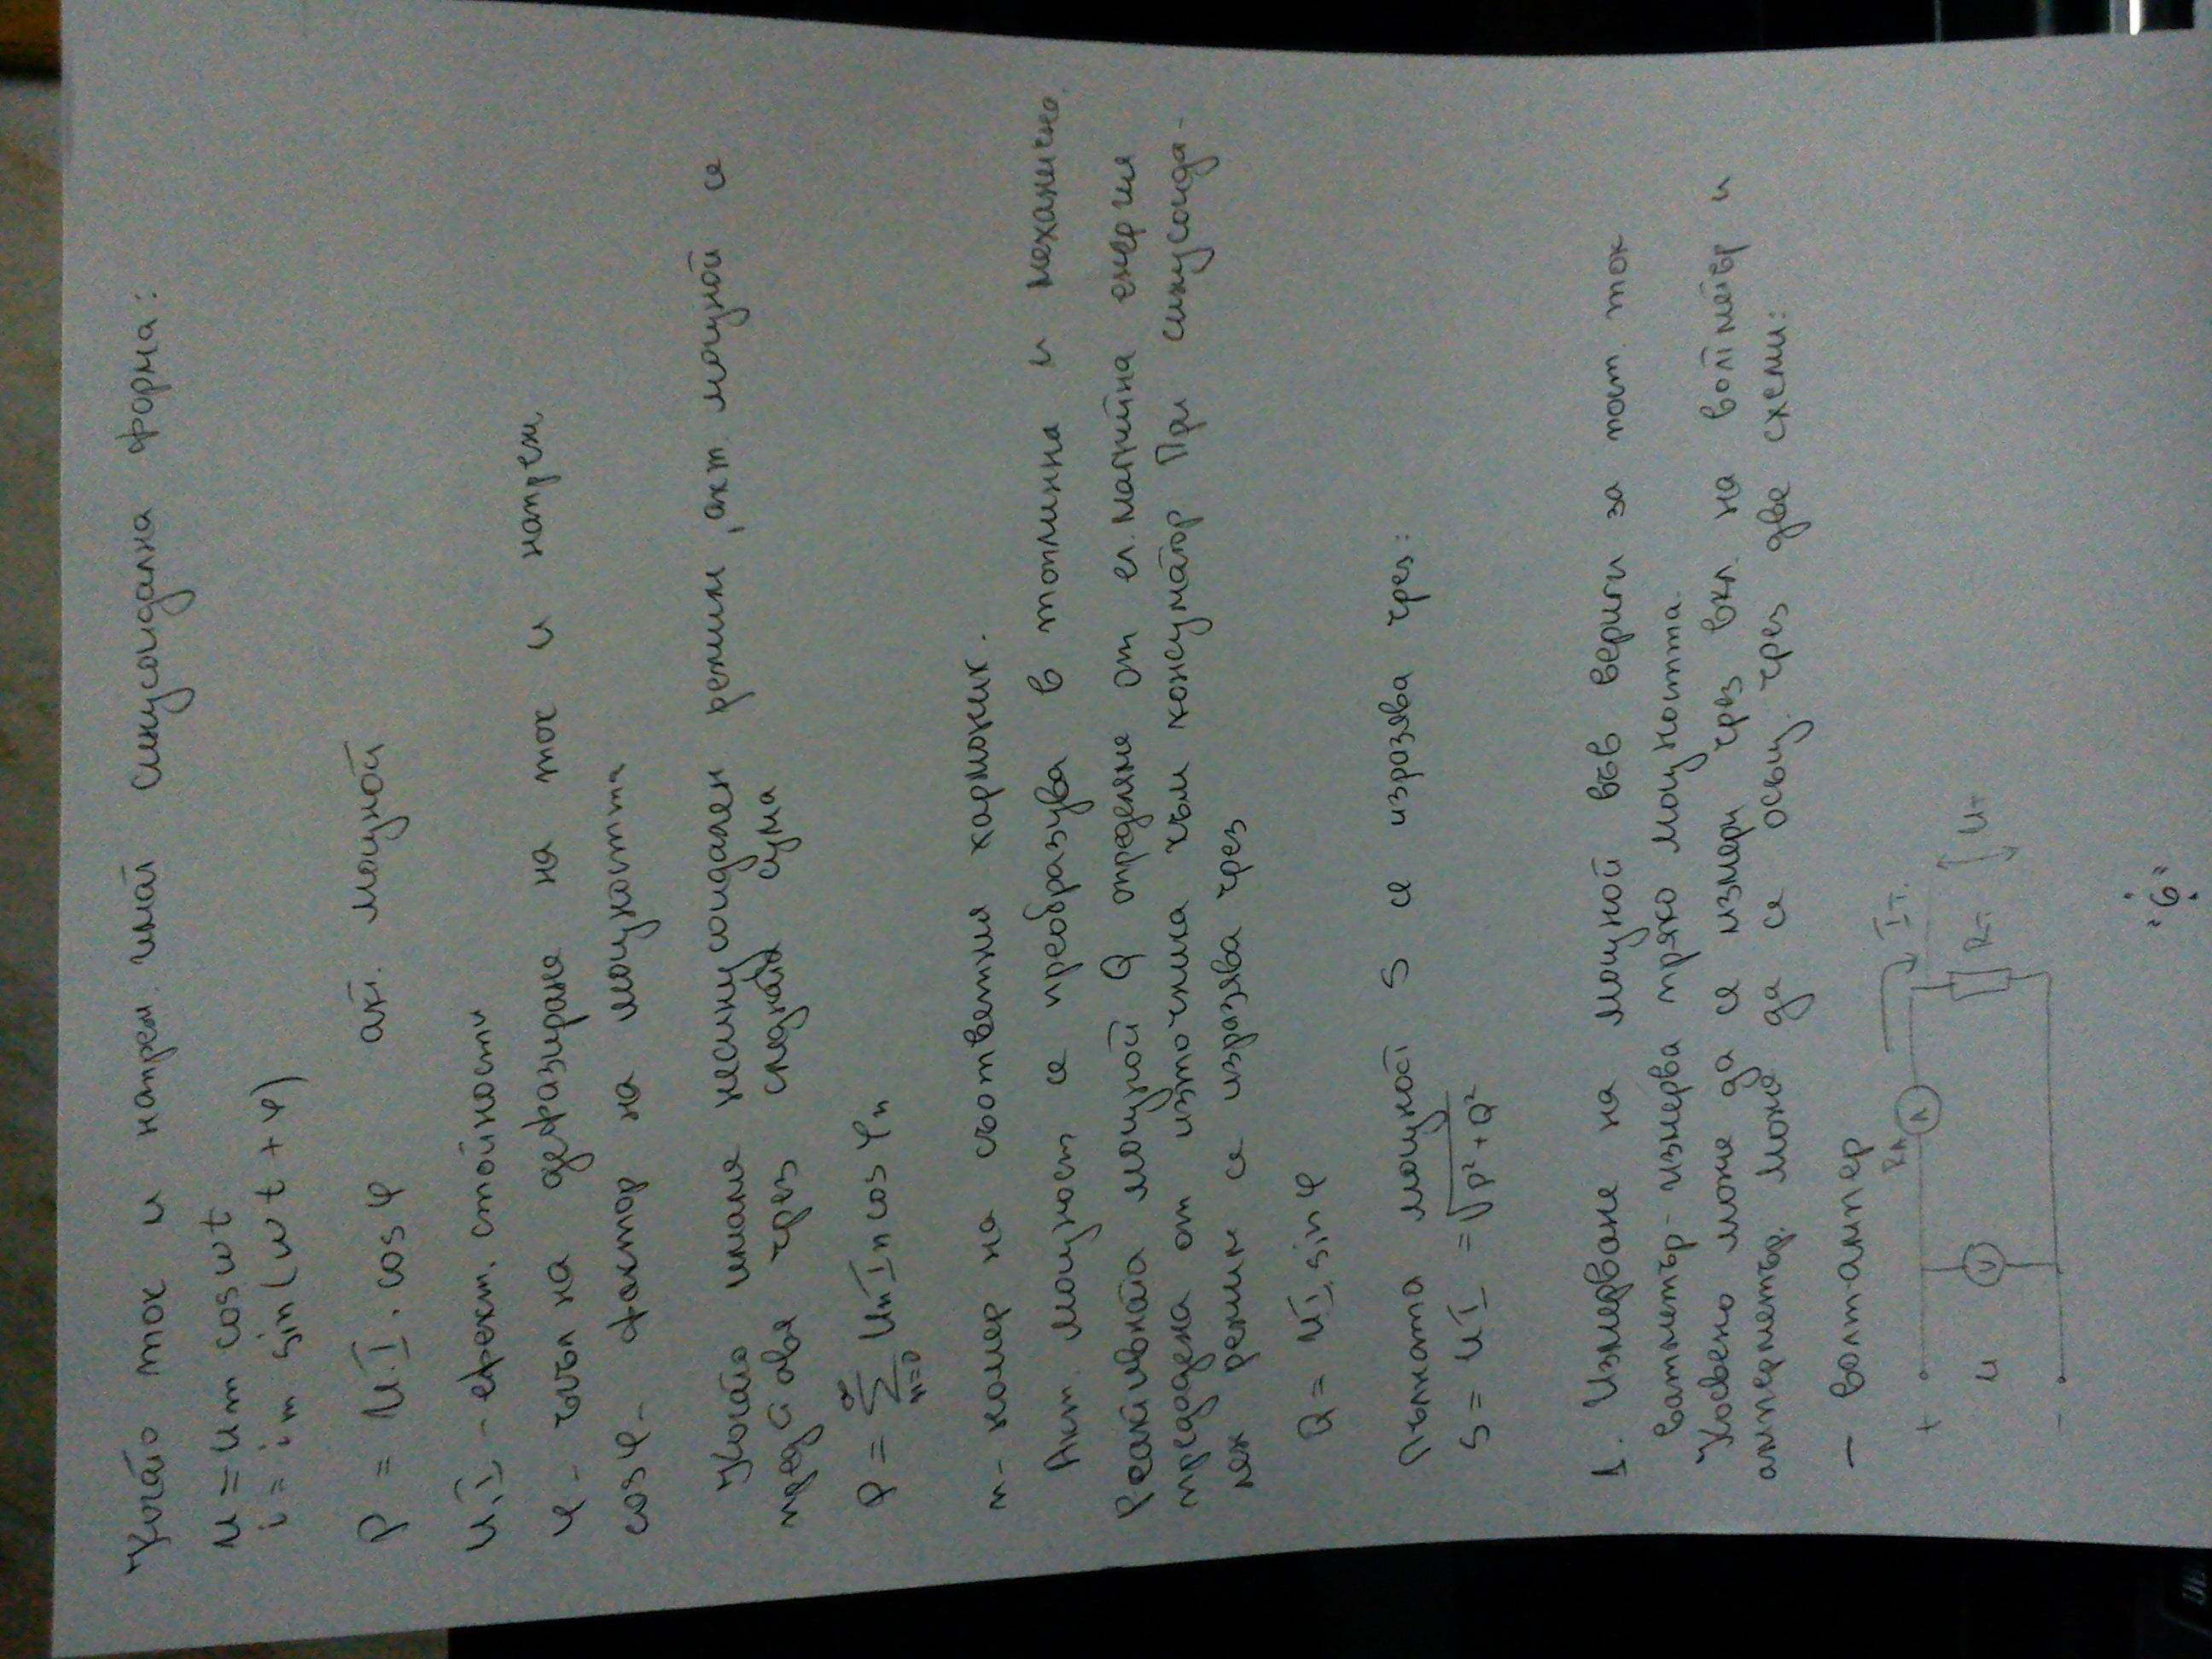 Когато ток и напреж. имат синусоидална форма:
u = um cos wt
i = im sin (wt + φ)
P = U.I. cos φ акт. мощност
U,I - ефект. стойности
φ - ъгъл на дефазиране на ток и напреж
cos φ - фактор на мощността
Когато имаме несинусоидален режим, акт. мощност се
представя чрез следната сума
P = ∞ Σ n=0 Un In cos φn
n - номер на съответния хармоник.
Акт. мощност се преобразува в топлинна и механично.
Реактивната мощност Q определяне от ел. магнитна енергия
предадена от източника към консуматор При синусоида-
лен режим се изразява чрез
Q = U.I. sin φ
Пълната мощност S се изразява чрез:
S = U I = √P² + Q²
1. Измерване на мощност във вериги за пост. ток
ватметър - измерва пряко мощността.
Косвено може да се измери чрез вкл. на волтметър и
амперметър, може да се осъщ. чрез две схеми:
- волтампер
+ U - V RA A IT RT UT
"6"